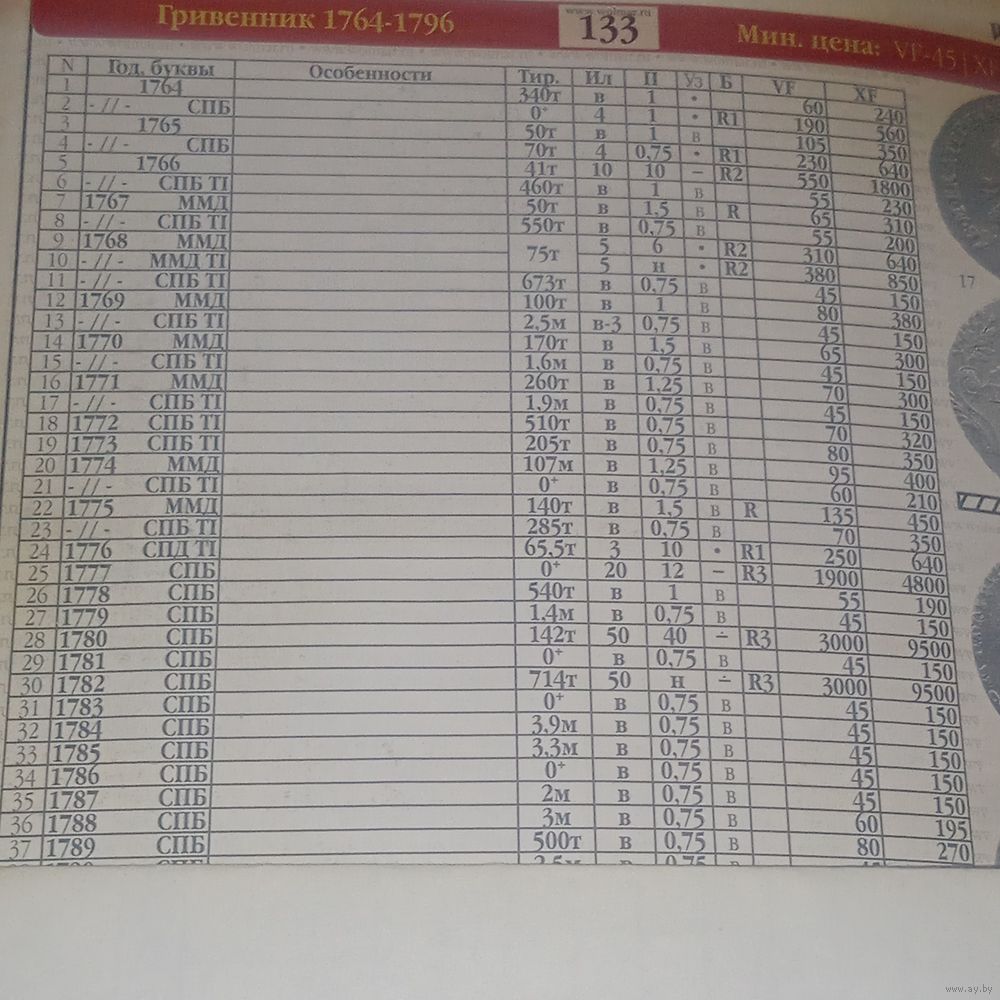 www.wolmar.ru
Гривенник 1764-1796 133 Мин. цена: VF-45 | XF
N Год, буквы Особенности Тир. Ил П Уз Б VF XF
1 1764 340т в 1 • 60 240
2 - // - СПБ 0⁺ 4 1 • R1 190 560
3 1765 50т в 1 в 105 350
4 - // - СПБ 70т 4 0,75 • R1 230 640
5 1766 41т 10 10 – R2 550 1800
6 - // - СПБ TI 460т в 1 в 55 230
7 1767 ММД 50т в 1,5 в R 65 310
8 - // - СПБ TI 550т в 0,75 в 55 200
9 1768 ММД 75т 5 6 • R2 310 640
10 - // - ММД TI 5 н • R2 380 850
11 - // - СПБ TI 673т в 0,75 в 45 150
12 1769 ММД 100т в 1 в 80 380
13 - // - СПБ TI 2,5м в-3 0,75 в 45 150
14 1770 ММД 170т в 1,5 в 65 300
15 - // - СПБ TI 1,6м в 0,75 в 45 150
16 1771 ММД 260т в 1,25 в 70 300
17 - // - СПБ TI 1,9м в 0,75 в 45 150
18 1772 СПБ TI 510т в 0,75 в 70 320
19 1773 СПБ TI 205т в 0,75 в 80 350
20 1774 ММД 107м в 1,25 в 95 400
21 - // - СПБ TI 0⁺ в 0,75 в 60 210
22 1775 ММД 140т в 1,5 в R 135 450
23 - // - СПБ TI 285т в 0,75 в 70 350
24 1776 СПД TI 65,5т 3 10 • R1 250 640
25 1777 СПБ 0⁺ 20 12 – R3 1900 4800
26 1778 СПБ 540т в 1 в 55 190
27 1779 СПБ 1,4м в 0,75 в 45 150
28 1780 СПБ 142т 50 40 ∸ R3 3000 9500
29 1781 СПБ 0⁺ в 0,75 в 45 150
30 1782 СПБ 714т 50 н ∸ R3 3000 9500
31 1783 СПБ 0⁺ в 0,75 в 45 150
32 1784 СПБ 3,9м в 0,75 в 45 150
33 1785 СПБ 3,3м в 0,75 в 45 150
34 1786 СПБ 0⁺ в 0,75 в 45 150
35 1787 СПБ 2м в 0,75 в 45 150
36 1788 СПБ 3м в 0,75 в 60 195
37 1789 СПБ 500т в 0,75 в 80 270
17
www.ay.by